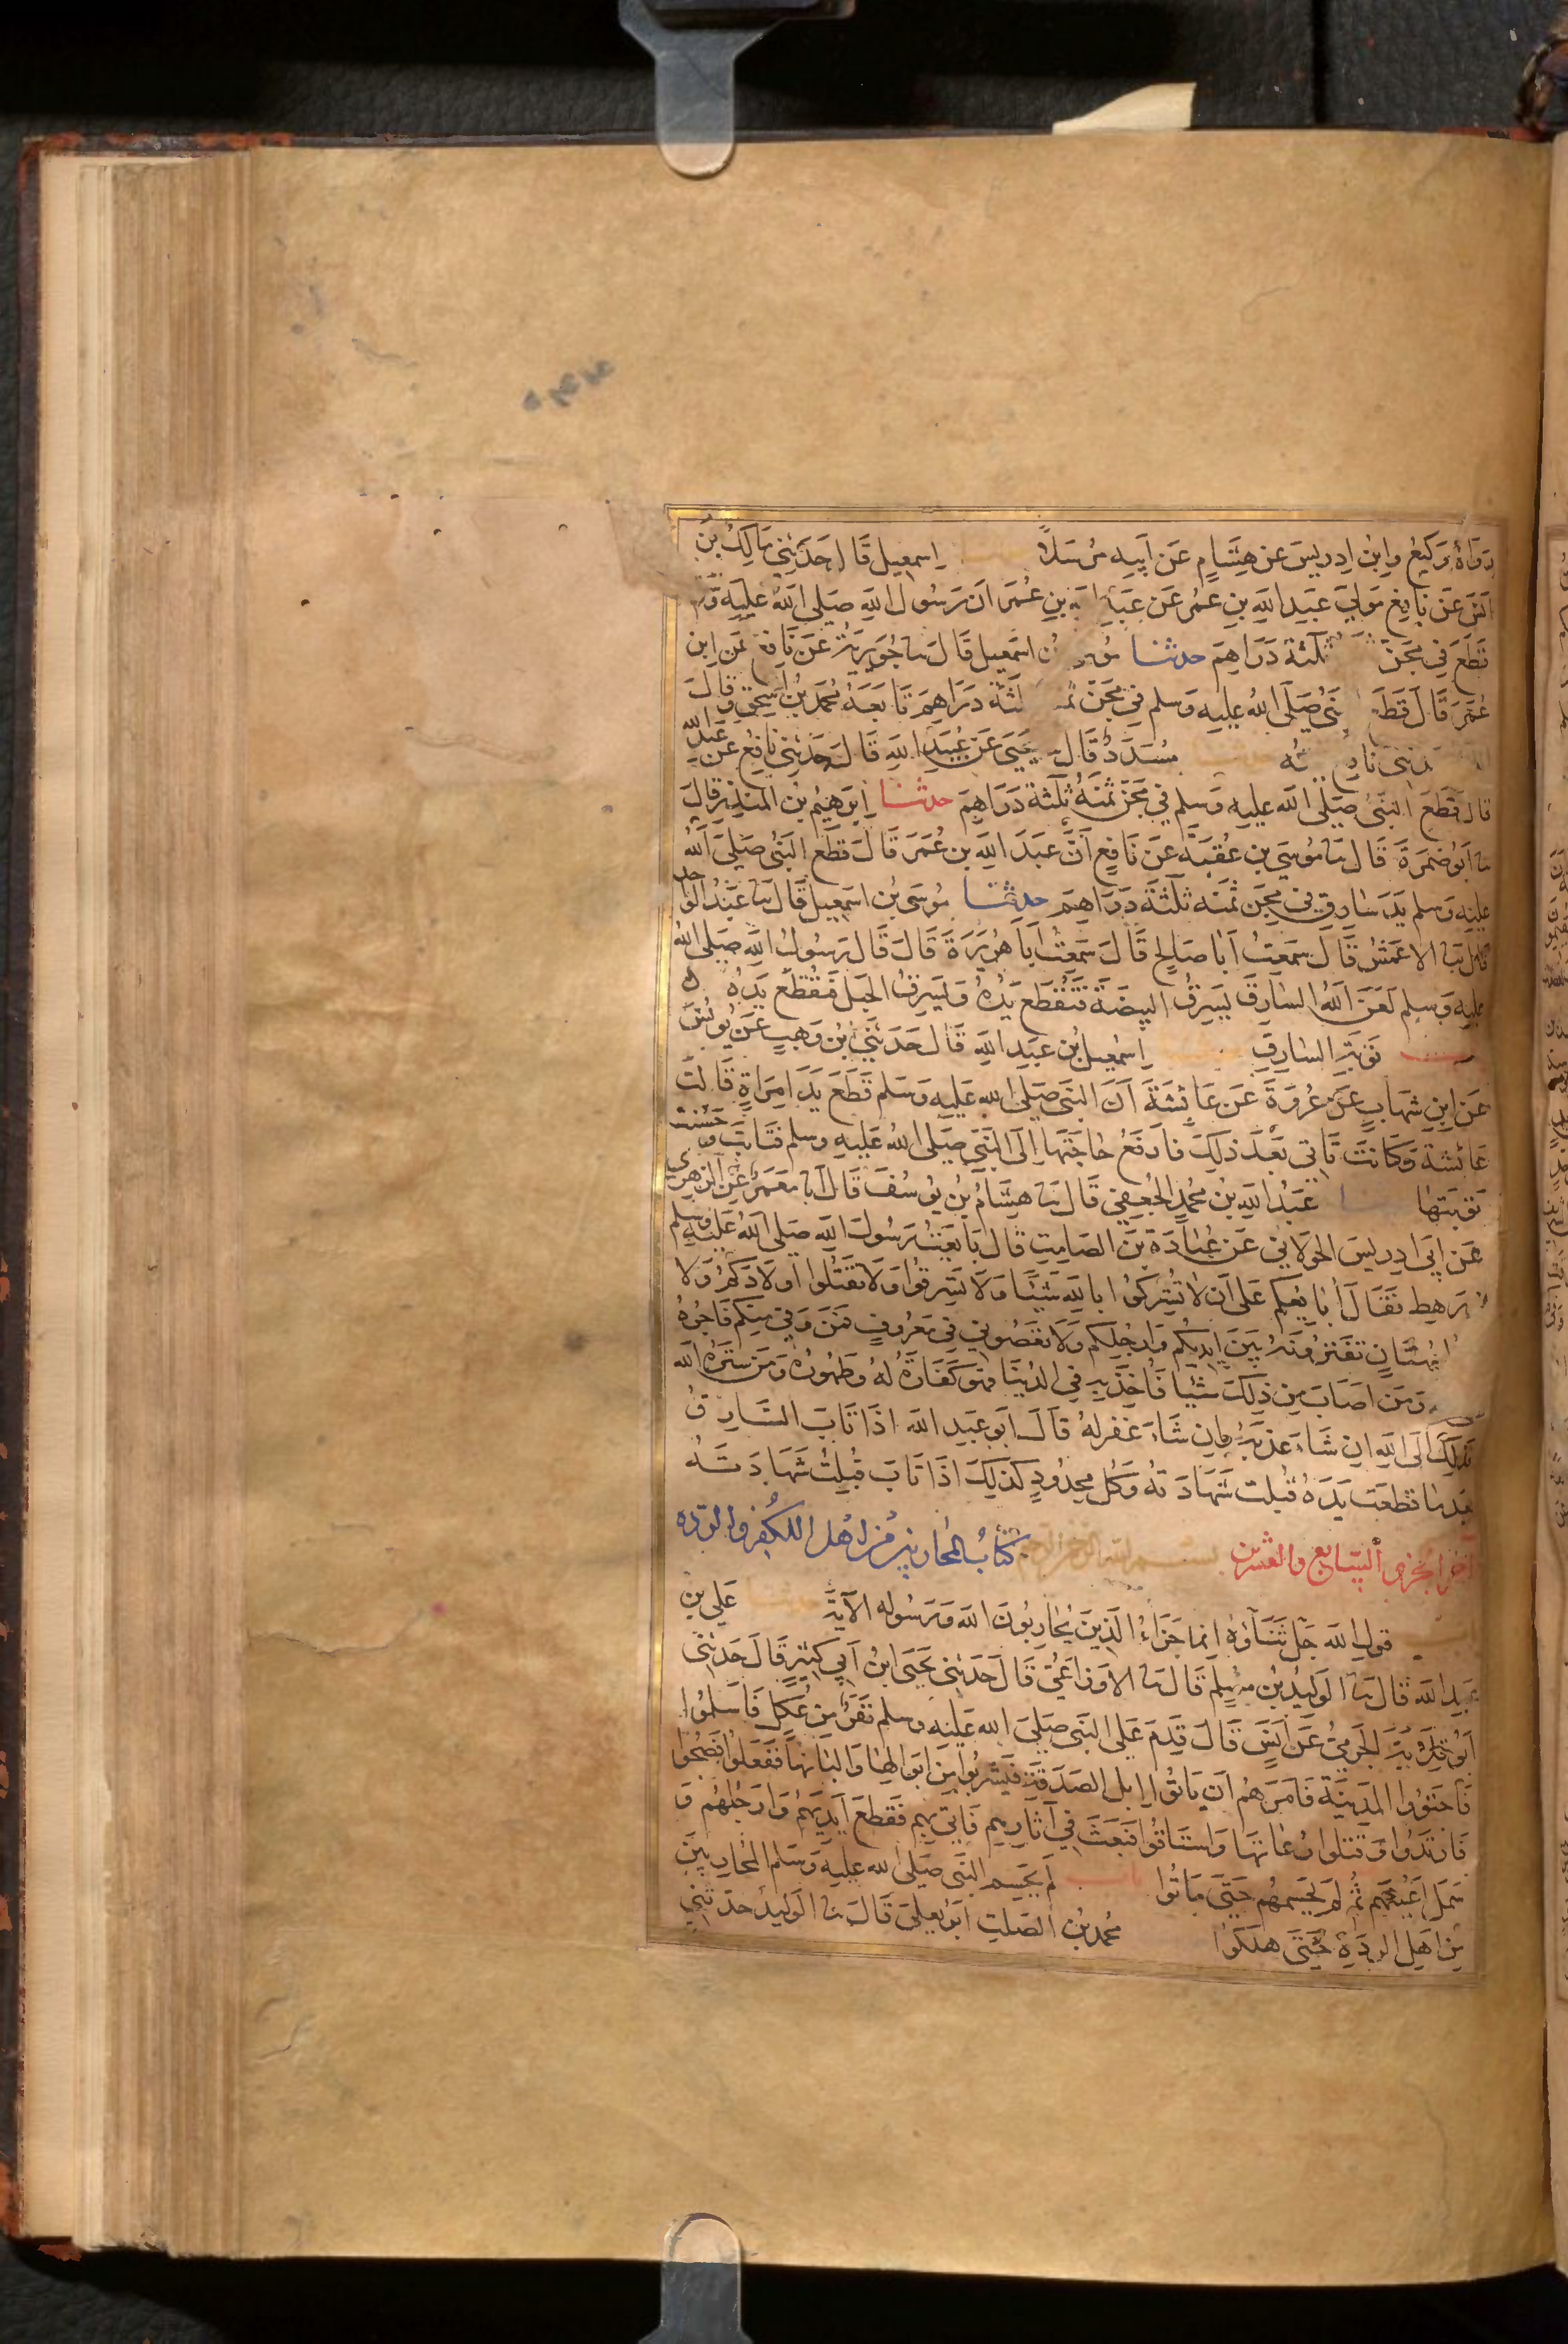 رواه وكيع وابن ادريس عن هشام عن ابيه مرسلا اسمعيل قال حدثني مالك بن
انس عن نافع مولى عبد الله بن عمر عن عبد الله بن عمر ان رسول الله صلى الله عليه وسلم
قطع في مجن ثلثة دراهم حدثنا اسمعيل قال ثنا جويرية عن نافع عن ابن
عمر قال قطع صلى الله عليه وسلم في مجن دراهم تابعه محمد بن اسحق وقال
مسدد قال ثنا يحيى عن عبيد الله قال حدثني نافع عن عبد الله
قال قطع النبي صلى الله عليه وسلم في مجن ثمنه ثلثة دراهم حدثنا ابرهيم بن المنذر قال
ثنا ابو ضمرة قال ثنا موسى بن عقبة عن نافع ان عبد الله بن عمر قال قطع النبي صلى الله
عليه وسلم يد سارق في مجن ثمنه ثلثة دراهم حدثنا موسى بن اسمعيل قال ثنا عبد الواحد
قال ثنا الاعمش قال سمعت ابا صالح قال سمعت ابا هريرة قال قال رسول الله صلى الله
عليه وسلم لعن الله السارق يسرق البيضة فتقطع يده ويسرق الحبل فتقطع يده
توبة السارق اسمعيل بن عبد الله قال حدثني بن وهب عن يونس
عن ابن شهاب عن عروة عن عائشة ان النبي صلى الله عليه وسلم قطع يد امراة قالت
عائشة وكانت تاتي بعد ذلك فارفع حاجتها الى النبي صلى الله عليه وسلم فتابت وحسنت
توبتها عبد الله بن محمد الجعفي قال ثنا هشام بن يوسف قال انا معمر عن الزهري
عن ابي ادريس الخولاني عن عبادة بن الصامت قال بايعت رسول الله صلى الله عليه وسلم
رهط فقال ابايعكم على ان لا تشركوا بالله شيئا ولا تسرقوا ولا تقتلوا اولادكم ولا
ببهتان تفترونه بين ايديكم وارجلكم ولا تعصوني في معروف فمن وفي منكم فاجره
ومن اصاب من ذلك شيئا فاخذ به في الدنيا فهو كفارة له وطهور ومن ستره الله
فذلك الى الله ان شاء عذبه وان شاء غفر له قال ابو عبد الله اذا تاب السارق
بعد ما قطعت يده قبلت شهادته وكل محدود كذلك اذا تاب قبلت شهادته
اخر الجزء السابع والعشرين بسم الله الرحمن الرحيم كتاب المحاربين من اهل الكفر والردة
باب قول الله جل ثناؤه انما جزاء الذين يحاربون الله ورسوله الآية حدثنا علي بن
عبد الله قال ثنا الوليد بن مسلم قال ثنا الاوزاعي قال حدثني يحيى ابن ابي كثير قال حدثني
ابو قلابة الجرمي عن انس قال قدم على النبي صلى الله عليه وسلم نفر من عكل فاسلموا
فاجتووا المدينة فامرهم ان ياتوا ابل الصدقة فيشربوا من ابوالها والبانها ففعلوا فصحوا
فارتدوا وقتلوا رعاتها واستاقوا فبعث في آثارهم فاتي بهم فقطع ايديهم وارجلهم و
سمل اعينهم ثم لم يحسمهم حتى ماتوا باب لم يحسم النبي صلى الله عليه وسلم المحاربين
من اهل الردة حتى هلكوا محمد بن الصلت ابو يعلى قال ثنا الوليد حدثني